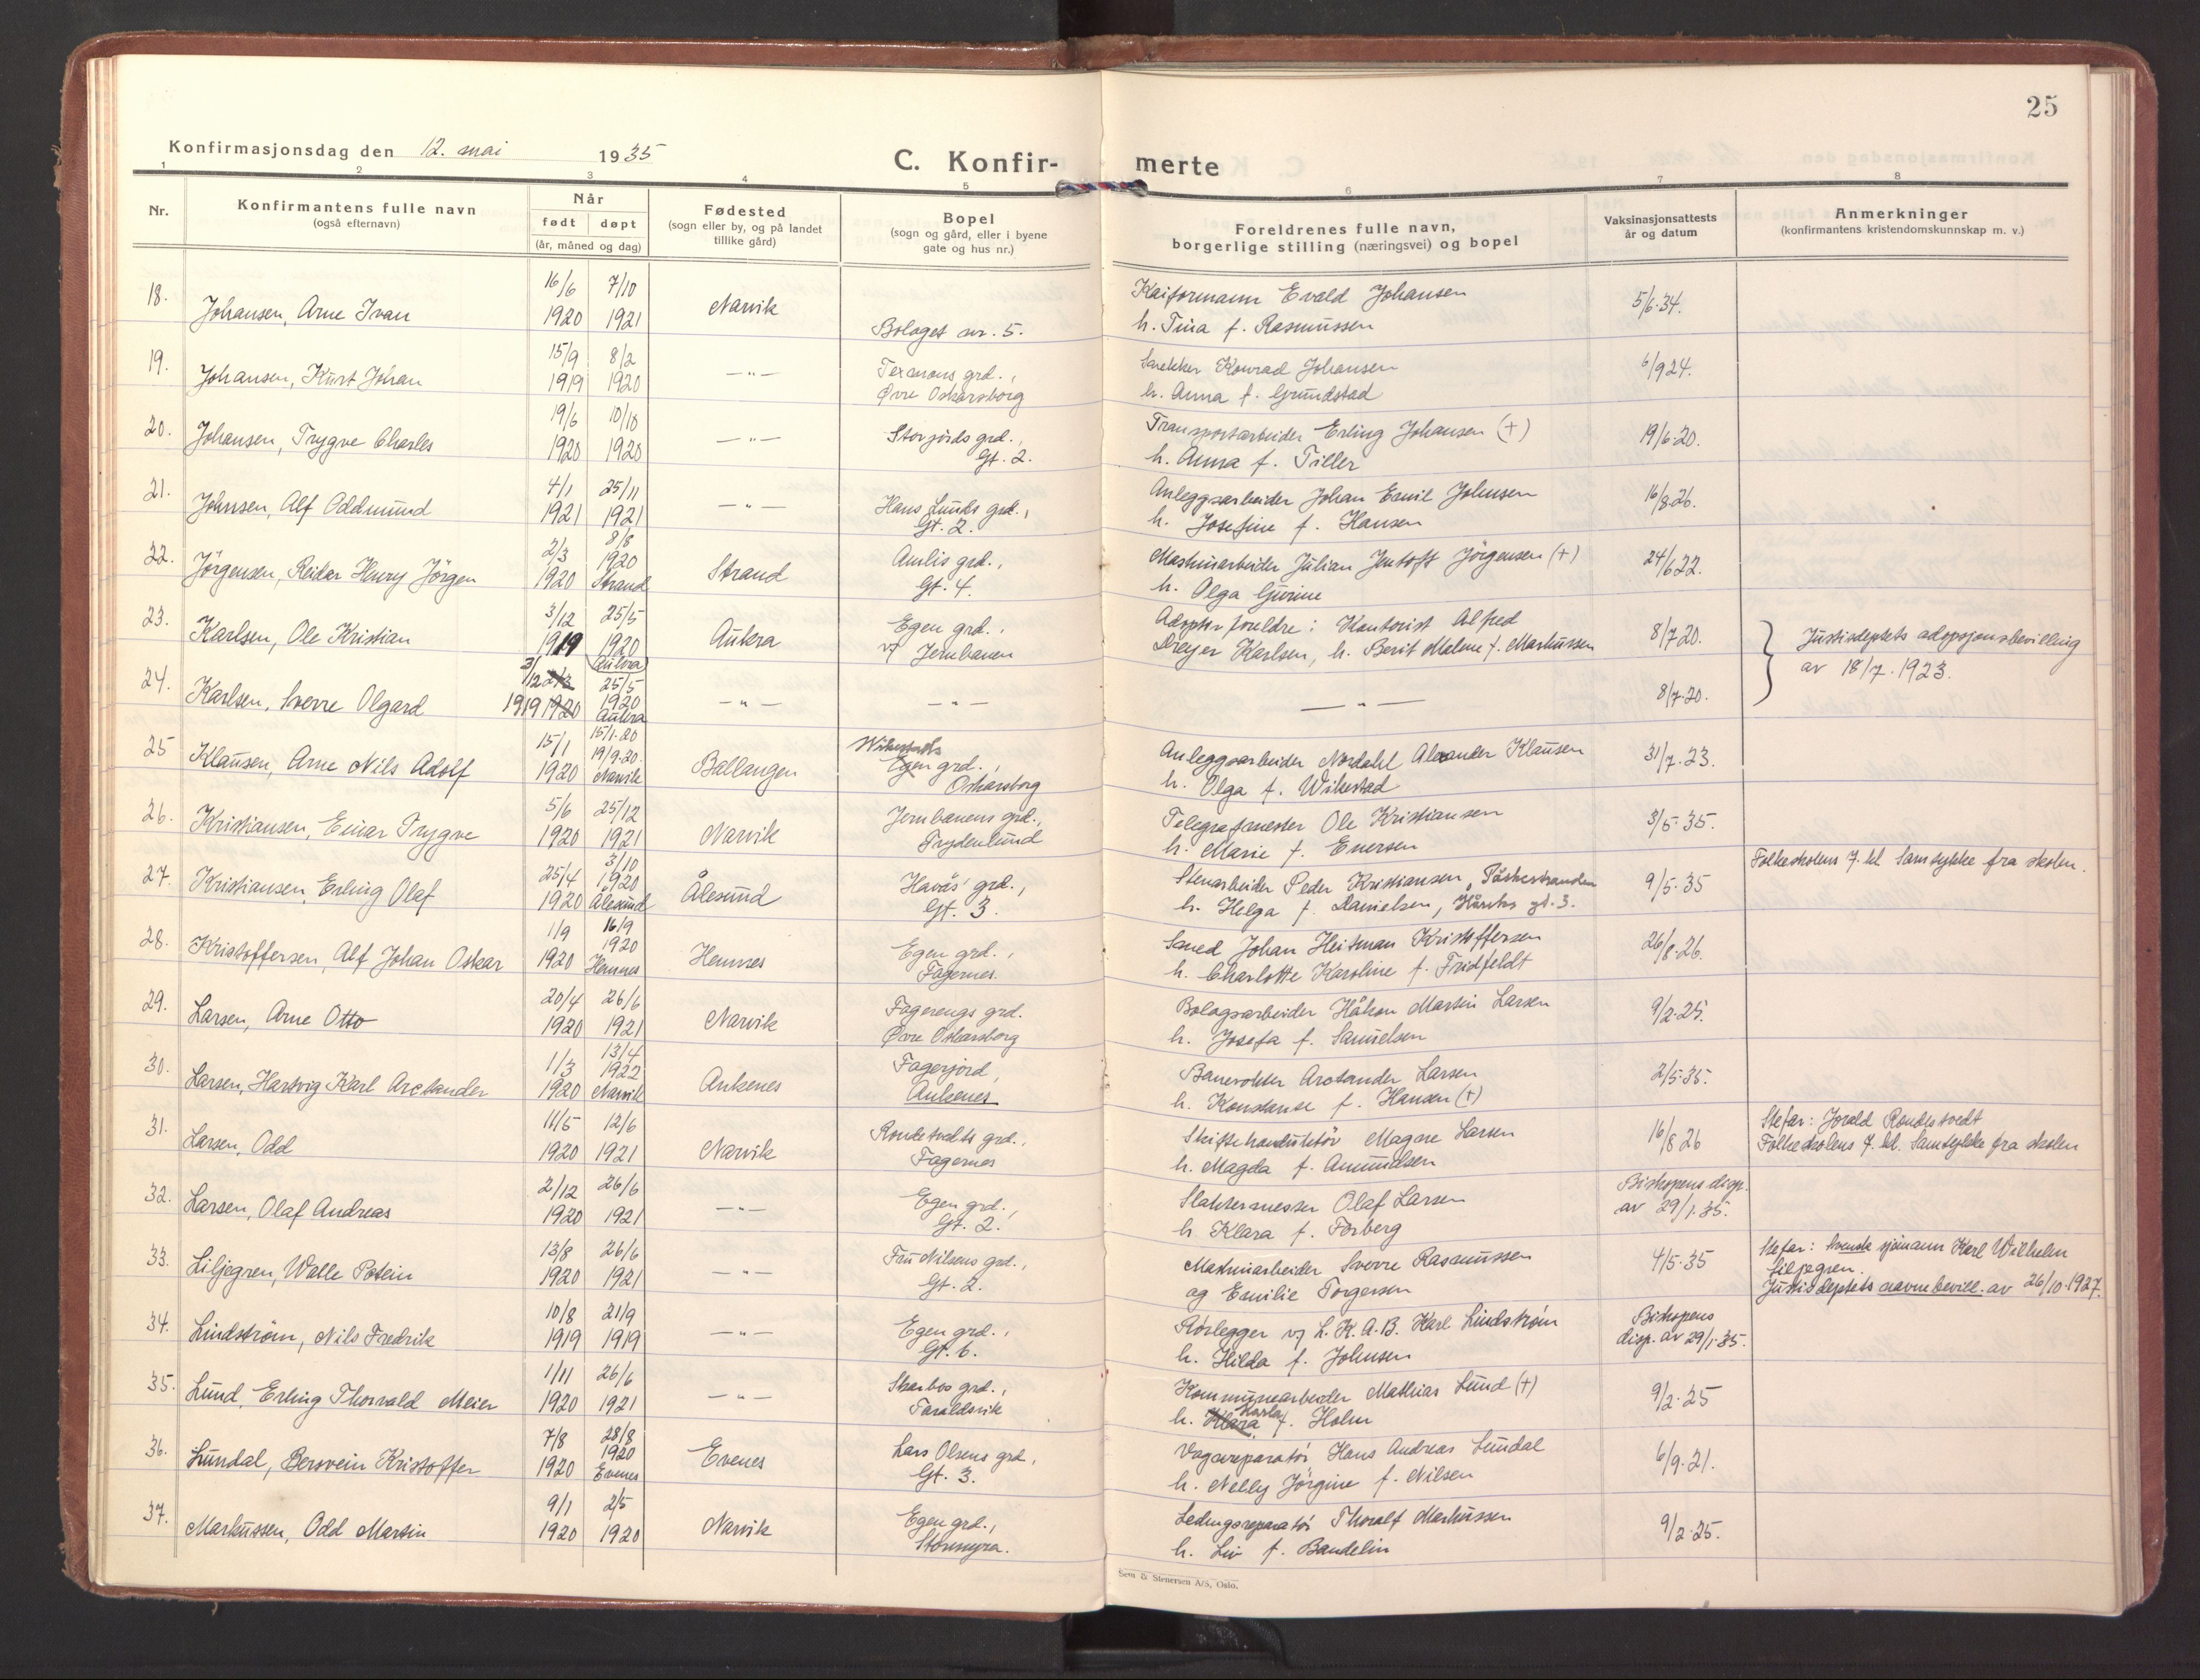 25
Konfirmasjonsdag den 12. mai 1935
C. Konfir- merte
1 2 3 4 5 6 7 8
Nr.
Konfirmantens fulle navn
(også efternavn)
Når
født døpt
(år, måned og dag)
Fødested
(sogn eller by, og på landet
tillike gård)
Bopel
(sogn og gård, eller i byene
gate og hus nr.)
Foreldrenes fulle navn,
borgerlige stilling (næringsvei) og bopel
Vaksinasjonsattests
år og datum
Anmerkninger
(konfirmantens kristendomskunnskap m. v.)
18. 16/6 7/10 Narvik Kaiformann Evald Johansen 5/6.34.
Johansen, Arne Ivan 1920 1921 Bolaget nr. 5. h. Tina f. Rasmussen
19. 15/9 8/2 —"— Texmons grd., Snekker Konrad Johansen 6/9 24.
Johansen, Kurt Johan 1919 1920 Øvre Oskarsborg h. Anna f. Grundstad
20. 19/6 10/10 —"— Storjords grd., Transportarbeider Erling Johansen (+) 19/6.20.
Johansen, Trygve Charles 1920 1920 Gt. 2. h. Anna f. Tiller
21. 4/1 25/11 —"— Hans Lunds grd., Anleggsarbeider Johan Emil Johnsen 16/8.26.
Johnsen, Alf Oddmund 1921 1921 Gt. 2. h. Josefine f. Hansen
22. 2/3 8/8 1920 Strand Amlis grd., Maskinarbeider Julian Jentoft Jörgensen (+) 24/6 22.
Jörgensen, Reidar Henry Jörgen 1920 Strand Gt. 4. h. Olga Gurine
23. 3/12 25/5 Aukra Egen grd., Adoptivforeldre: Kontorist Alfred 8/7 20. Justisdeptets adopsjonsbevilling
Karlsen, Ole Kristian 1919 1920 Aukra v/ Jernbanen Dreyer Karlsen, h. Berit Malene f. Markussen av 18/7.1923.
24. 3/12 2/3 25/5 —"— —"— —"— 8/7.20.
Karlsen, Sverre Olgard 1919 1920 1920 Aukra
25 15/1 15/1.20 19/9.20. Ballangen Egen grd., Anleggsarbeider Nordahl Alexander Klausen 31/7.23.
Klausen, Arne Nils Adolf 1920 Narvik Oskarsborg h. Olga f. Wikestad
26. 5/6 25/12 Narvik Jernbanens grd., Telegrafmester Ole Kristiansen 3/5.35.
Kristiansen, Einar Trygve 1920 1921 Frydenlund h. Marie f. Enersen
27. 25/4 3/10 1920 Ålesund Havås grd., Stenarbeider Peder Kristiansen, 9/5.35 Folkeskolens 7. kl Samtykke fra skolen.
Kristiansen, Erling Olaf 1920 Ålesund Gt. 3. h. Helga f. Danielsen, gt. 3.
28. 1/9 16/9 1920 Hemnes Egen grd., Smed Johan Heitman Kristoffersen 26/8.26.
Kristoffersen, Alf Johan Oskar 1920 Hemnes Fagernes. h. Charlotte Karoline f. Fridfeldt
29. 20/4 26/6 Narvik Fagerengs grd. Bolagsarbeider Håkon Martin Larsen 9/2.25.
Larsen, Arne Otto 1920 1921 Øvre Oskarsborg h. Josefa f. Samuelsen
30. 1/3 13/4 1922 Ankenes Fagerjord, Banevokter Arctander Larsen 2/5.35.
Larsen, Hartvig Karl Arctander 1920 Narvik Ankenes h. Konstanse f. Hansen (+)
31. 11/5 12/6 Narvik Rondetvedts grd., Skiftekonduktör Magne Larsen 16/8 26 Stefar: Jorald Rondetvedt
Larsen, Odd 1920 1921 Fagernes h. Magda f. Amundsen Folkeskolens 7. kl. Samtykke fra skolen
32. 2/12 26/6 —"— Egen grd., Slaktermester Olaf Larsen Bishopens disp.
Larsen, Olaf Andreas 1920 1921 Gt. 2. h Klara f. Forberg av 29/1.35.
33. 13/8 26/6 —"— Fru Nilsens grd., Maskinarbeider Sverre Rasmussen 4/5.35 Stefar: Svensk sjömann Karl Wilhelm
Liljegren, Walle Potein 1920 1921 Gt. 2. og Emilie Torgersen Liljegren.
Justisdeptets navnebevill. av 26/10.1927.
34. 10/8 21/9 —"— Egen grd., Rörlegger v/ L.K.A.B. Karl Lindström Bishopens
Lindström, Nils Fredrik 1919 1919 Gt. 6. h. Hilda f. Johnsen disp. av 29/1.35.
35. 1/11 26/6 —"— Skarbos grd., Kommunearbeider Mathias Lund (+) 9/2.25
Lund, Erling Thorvald Meier 1920 1921 Taraldsvik h. Klara Karla f. Holm
36. 7/8 28/8 1920 Evenes Lars Olsens grd., Vognreparatör Hans Andreas Lundal 6/9.21.
Lundal, Bersvein Kristoffer 1920 Evenes Gt. 3. h. Nelly Jörgine f. Nilsen
37. 9/1 2/5 Narvik Egen grd., Ledningsreparatör Thoralf Markussen 9/2.25.
Markussen, Odd Martin 1920 1920 Stormyra. h. Liv f. Bandelin
Sem & Stenersen A/S, Oslo.